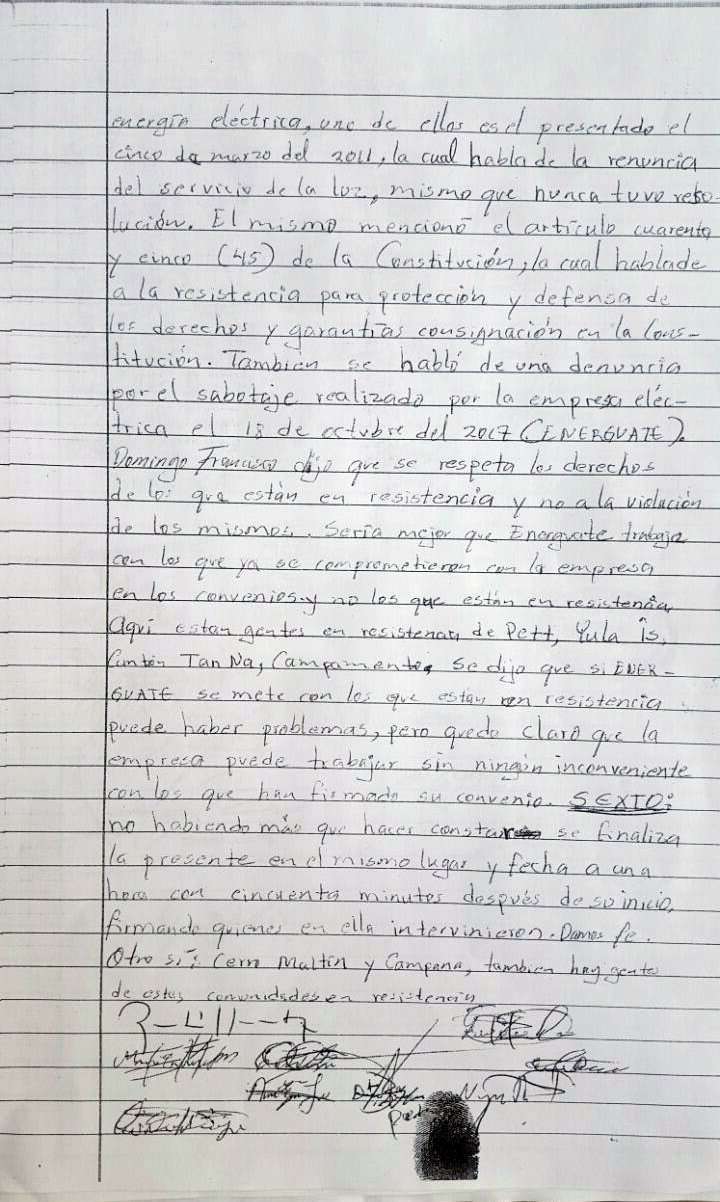 energía eléctrica, uno de ellos es el presentado el
cinco de marzo del 2011, la cual habla de la renuncia
del servicio de la luz, mismo que nunca tuvo reso-
lución. El mismo mencionó el artículo cuarenta
y cinco (45) de la Constitución, la cual hablade
a la resistencia para protección y defensa de
los derechos y garantías consignación en la Cons-
titución. Tambien se habló de una denuncia
por el sabotaje realizado por la empresa eléc-
trica el 18 de octubre del 2017 (ENERGUATE).
Domingo Francisco dijo que se respeta los derechos
de los que están en resistencia y no a la violación
de los mismos. Sería mejor que Energuate trabaje
con los que ya se comprometieron con la empresa
en los convenios y no los que están en resistencia
Aquí estan gentes en resistencia de Pett, Yula is,
Cantón Tan Na, Campamento, se dijo que si ENER-
GUATE se mete con los que estan en resistencia
puede haber problemas, pero quedo claro que la
empresa puede trabajar sin ningún inconveniente
con los que han firmado su convenio. SEXTO:
no habiendo más que hacer constar se finaliza
la presente en el mismo lugar y fecha a una
hora con cincuenta minutos después de su inicio,
firmando quienes en ella intervinieron. Damos fe.
Otro si: Cerro Maltín y Campana, tambien hay gente
de estas comunidades en resistencia